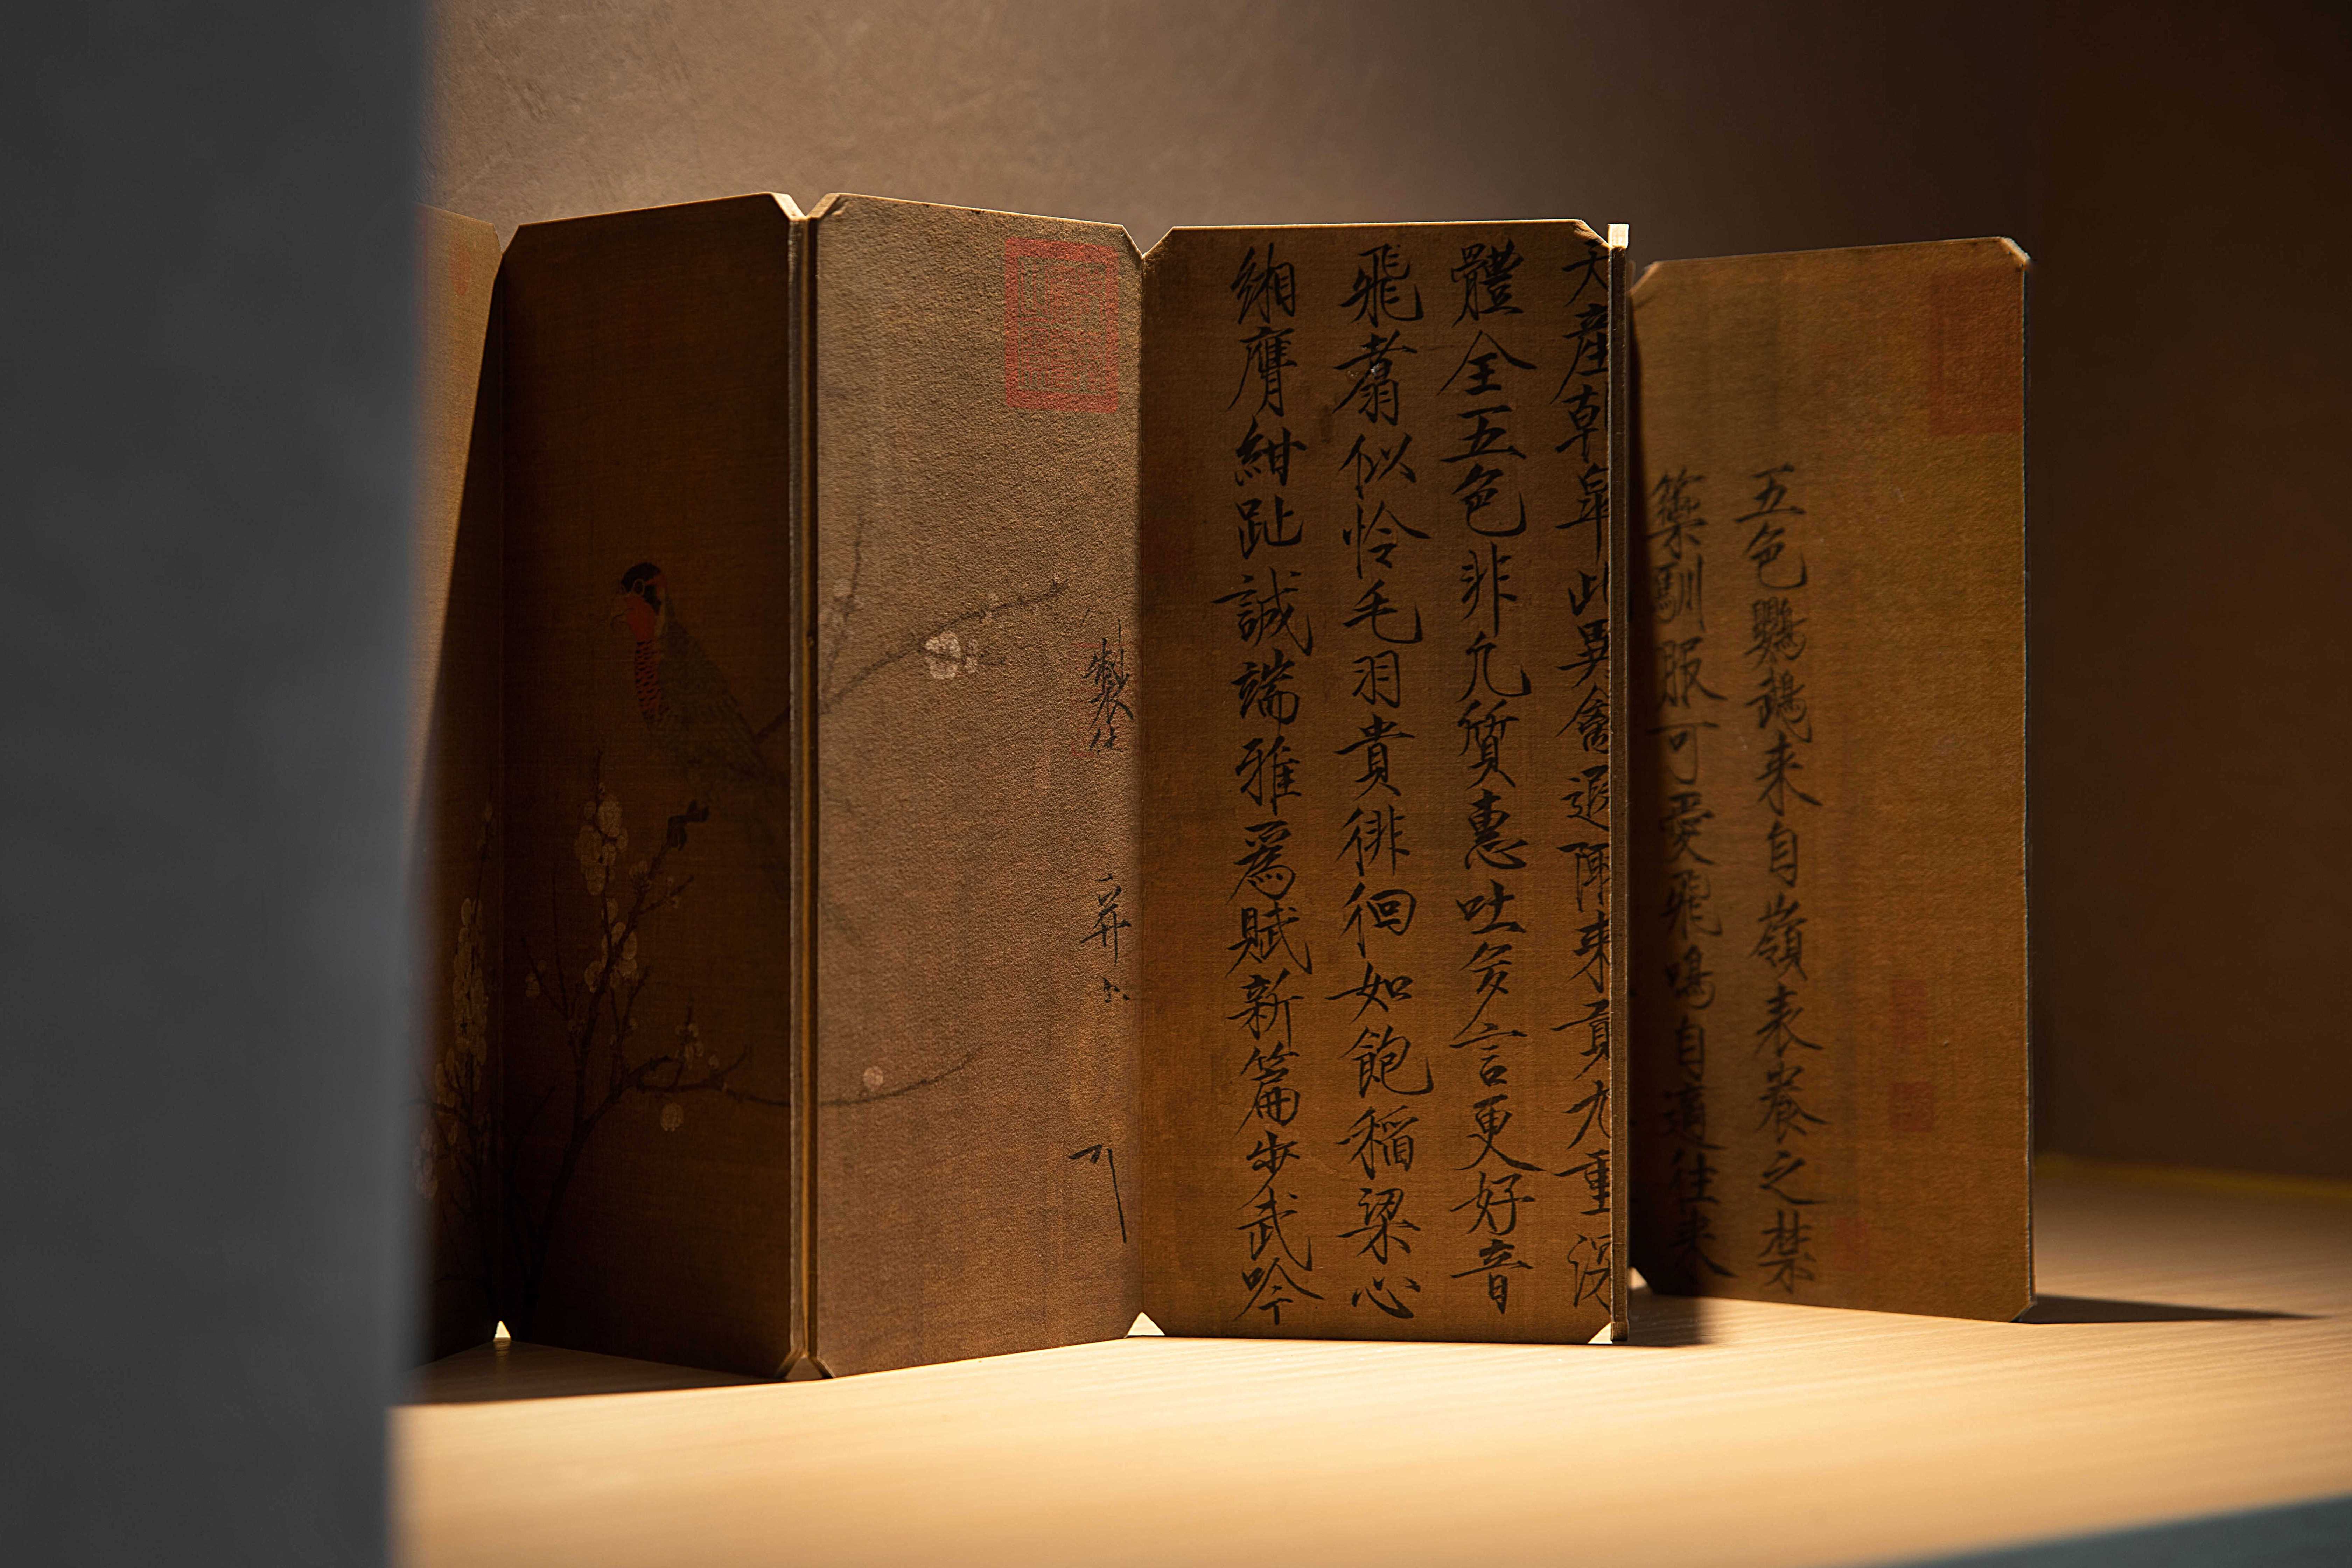 五色鸚鵡来自嶺表養之禁
籞馴服可愛飛鳴自適往来
天産乹皐此異禽遐陬来貢九重深
體全五色非凢質惠吐多言更好音
飛翥似怜毛羽貴徘徊如飽稲粱心
緗膺紺趾誠端雅爲賦新篇步武吟